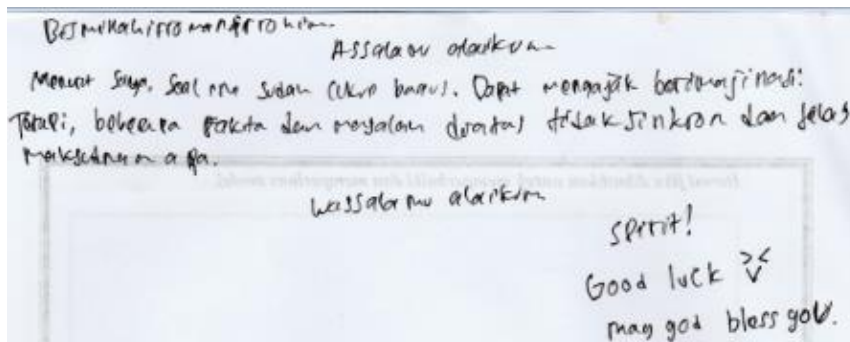 Bismillahirromanirrohim.
Assalamu alaikum
Menurut saya, soal nnu sudah cukup bagus. Dapat mengajak berimajinasi.
Tetapi, beberapa fakta dan masalah diatas tidak sinkron dan jelas
maksudnya apa.
Wassalamu alaikum
Spirit!
Good luck
may god bless you.